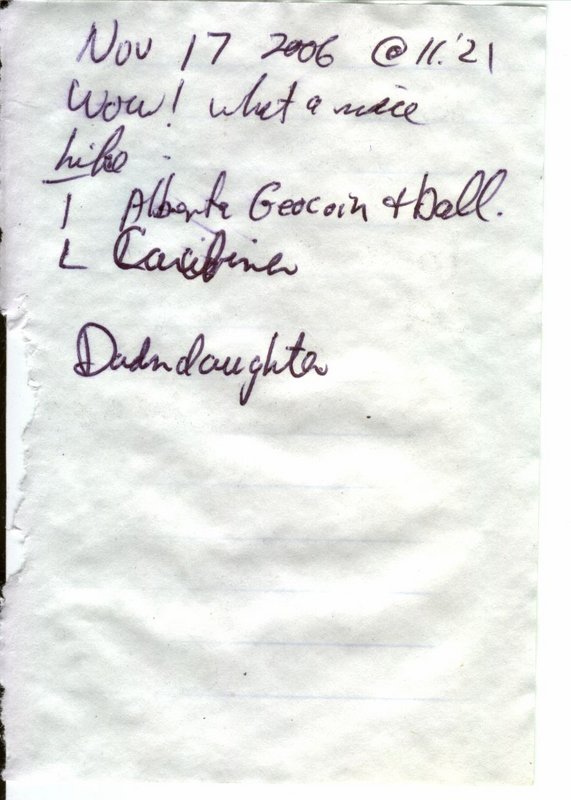 Nov 17 2006 @ 11:21
Wow! what a nice
hike
T Alberta Geocoin + Ball.
L Caribiner
Dadndaughter